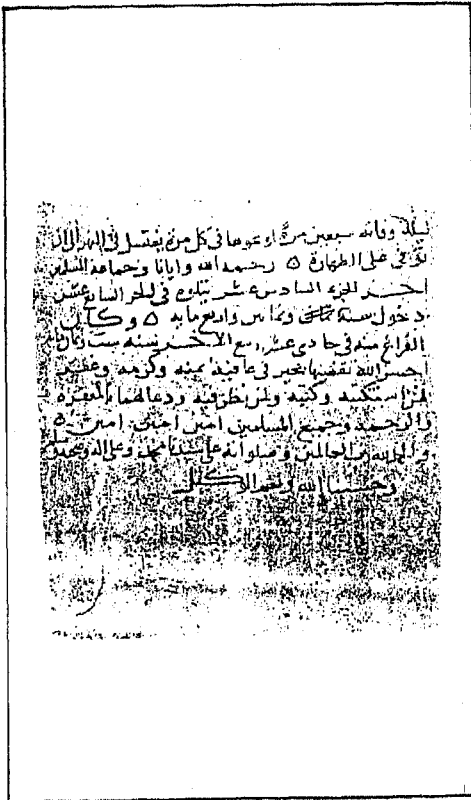 ليلة وفاته سبعين مرة او نحوها في كل مرة يغتسل في النهر الى ان
توفي على الطهارة ٥ رحمه الله وايانا وجماعة المسلمين
اخر الجزء السادس عشر يتلوه في الجزء السابع عشر
دخول سنة وثمانين واربع مايه ٥ وكان
الفراغ منه في حادي عشر ربيع الاخر سنة ست
احسن الله تقضيها بخير في عافية بمنه وكرمه وغفر
لمن استكتبه وكتبه ولمن نظر فيه ودعا لهما بالمغفرة
والرحمة ولجميع المسلمين امين امين امين ٥
والحمد لله رب العالمين وصلواته على سيدنا محمد وعلى اله وصحبه وسلم
وحسبنا الله ونعم الوكيل